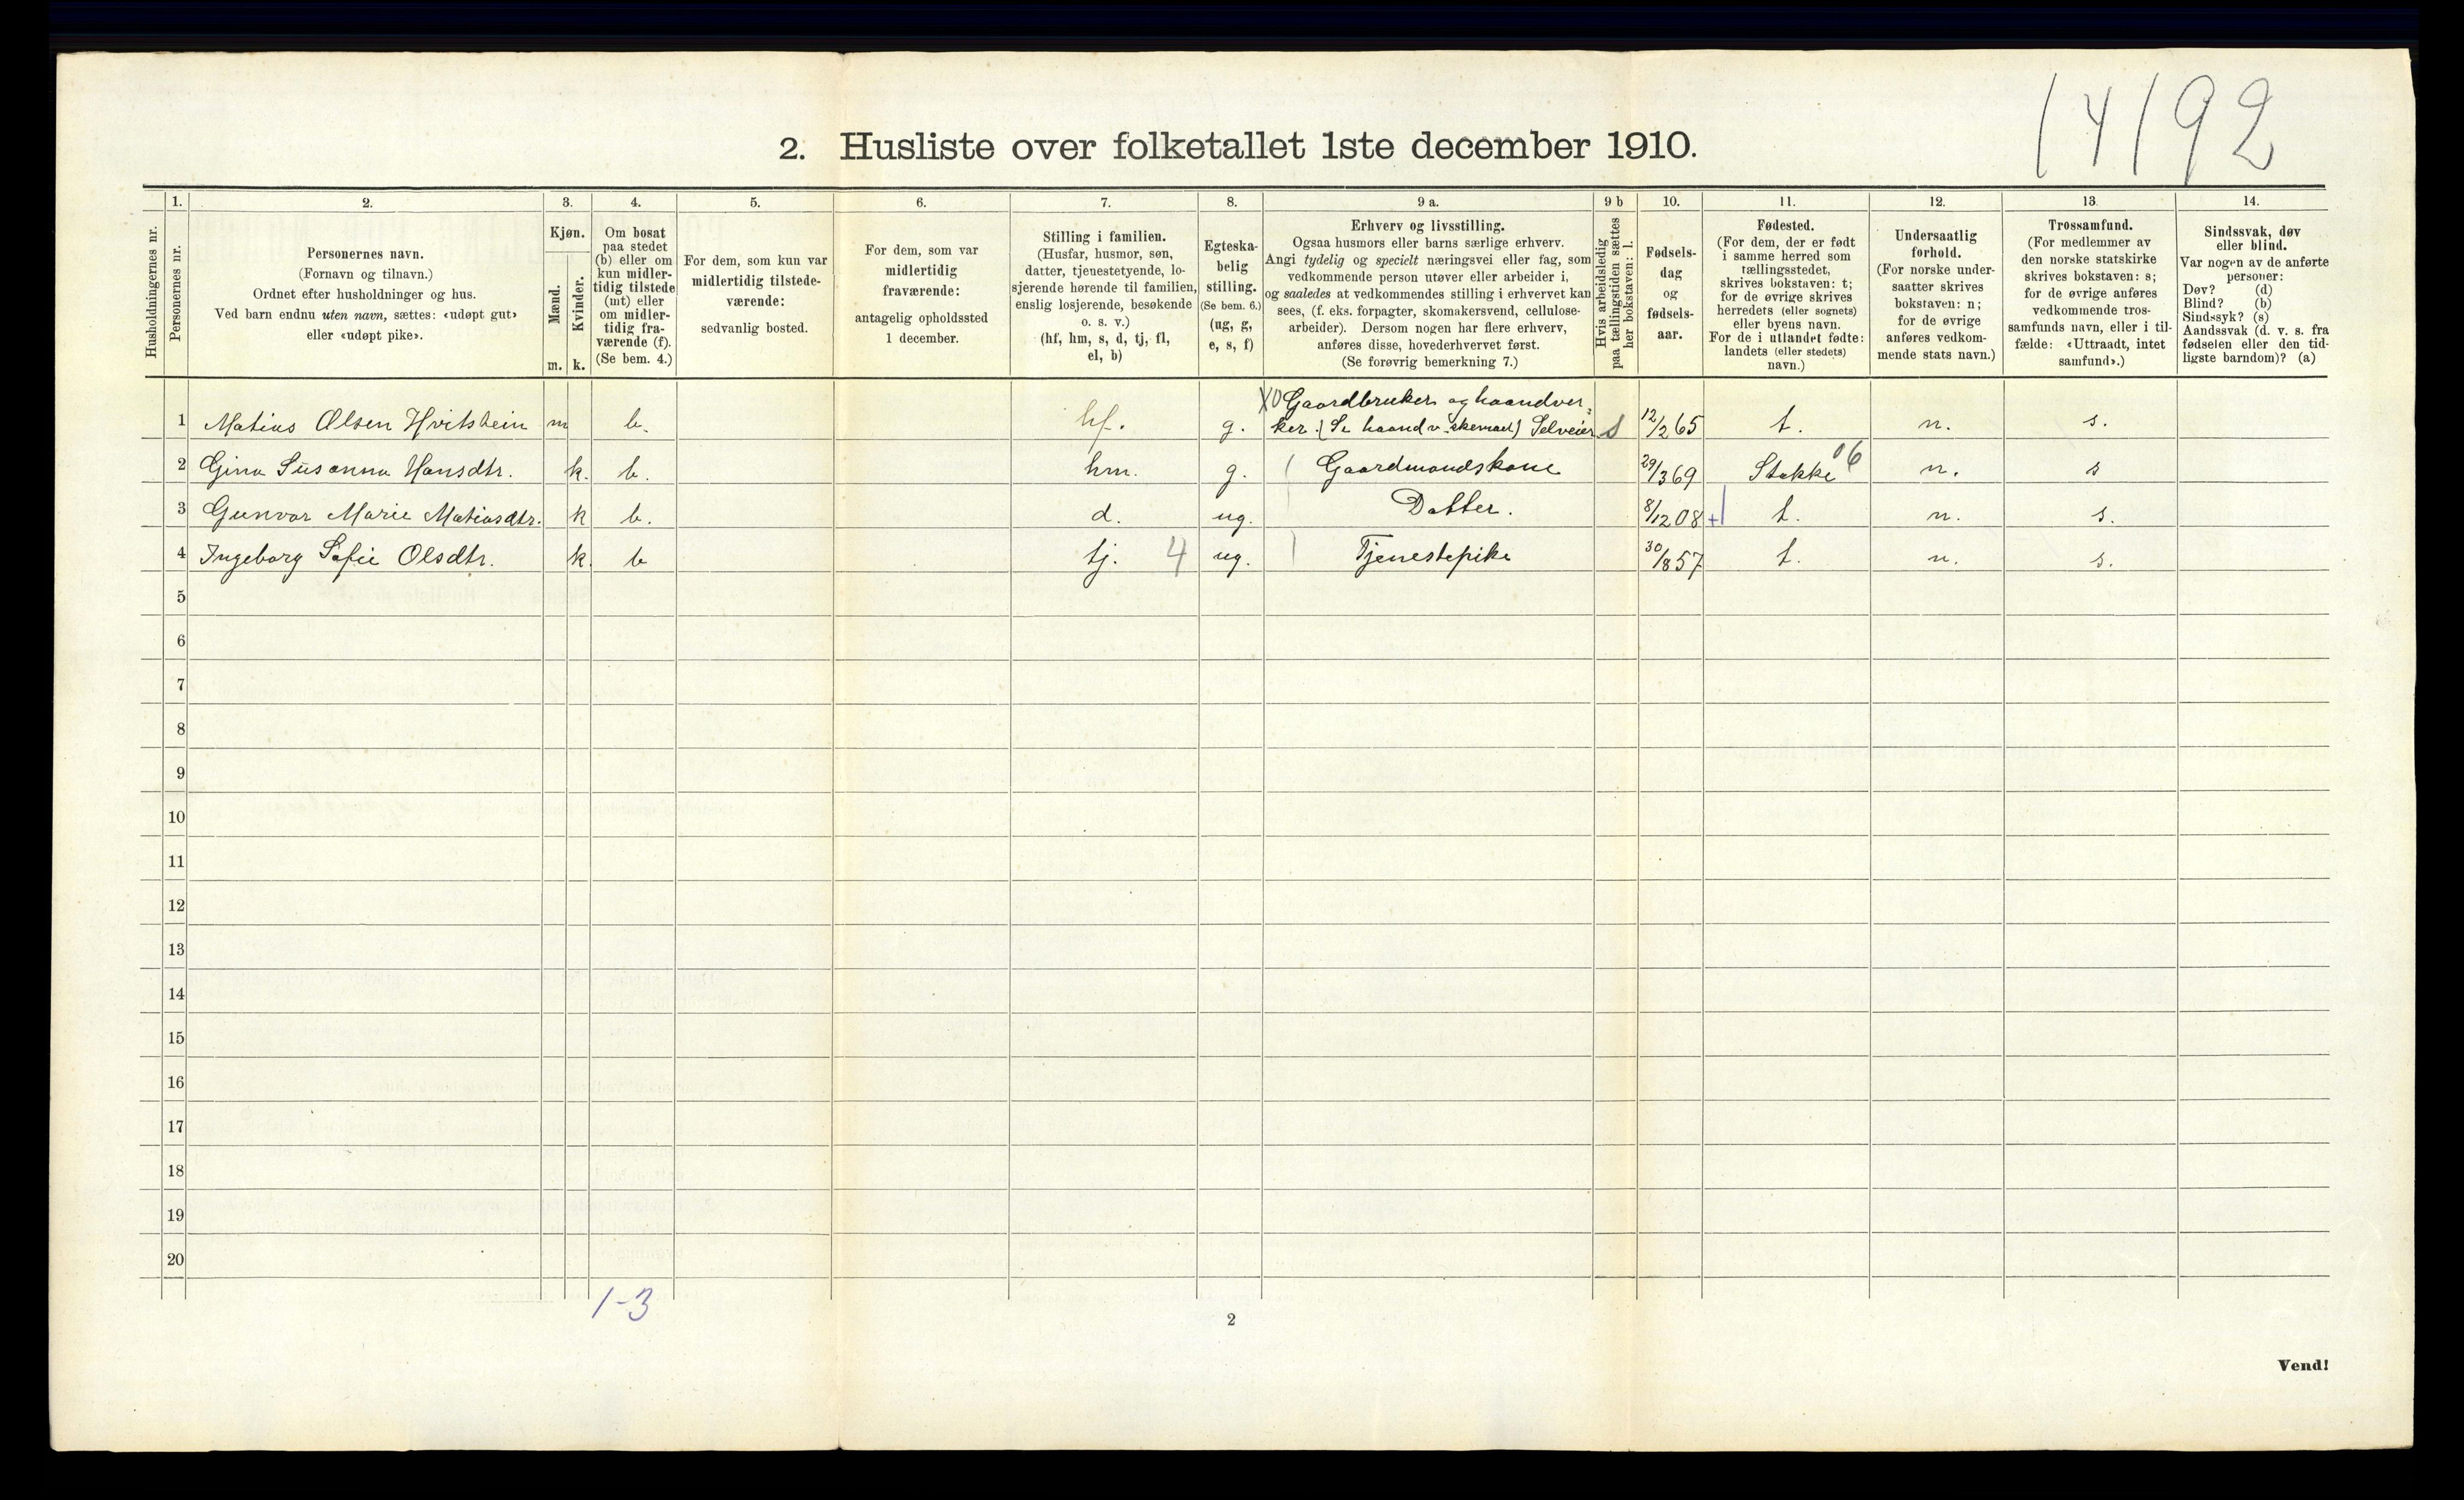 14192
2. Husliste over folketallet 1ste december 1910.
1. 2. 3. 4. 5. 6. 7. 8. 9 a. 9 b 10. 11. 12. 13. 14.
Husholdningernes nr.
Personernes nr.
Personernes navn.
(Fornavn og tilnavn.)
Ordnet efter husholdninger og hus.
Ved barn endnu uten navn, sættes: «udøpt gut»
eller «udøpt pike».
Kjøn.
Mænd.
Kvinder.
m. k.
Om bosat
paa stedet
(b) eller om
kun midler-
tidig tilstede
(mt) eller
om midler-
tidig fra-
værende (f).
(Se bem. 4.)
For dem, som kun var
midlertidig tilstede-
værende:
sedvanlig bosted.
For dem, som var
midlertidig
fraværende:
antagelig opholdssted
1 december.
Stilling i familien.
(Husfar, husmor, søn,
datter, tjenestetyende, lo-
sjerende hørende til familien,
enslig losjerende, besøkende
o. s. v.)
(hf, hm, s, d, tj, fl,
el, b)
Egteska-
belig
stilling.
(Se bem. 6.)
(ug, g,
e, s, f)
Erhverv og livsstilling.
Ogsaa husmors eller barns særlige erhverv.
Angi tydelig og specielt næringsvei eller fag, som
vedkommende person utøver eller arbeider i,
og saaledes at vedkommendes stilling i erhvervet kan
sees, (f. eks. forpagter, skomakersvend, cellulose-
arbeider). Dersom nogen har flere erhverv,
anføres disse, hovederhvervet først.
(Se forøvrig bemerkning 7.)
Hvis arbeidsledig
paa tællingstiden sættes
her bokstaven: l.
Fødsels-
dag
og
fødsels-
aar.
Fødested.
(For dem, der er født
i samme herred som
tællingsstedet,
skrives bokstaven: t;
for de øvrige skrives
herredets (eller sognets)
eller byens navn.
For de i utlandet fødte:
landets (eller stedets)
navn.)
Undersaatlig
forhold.
(For norske under-
saatter skrives
bokstaven: n;
for de øvrige
anføres vedkom-
mende stats navn.)
Trossamfund.
(For medlemmer av
den norske statskirke
skrives bokstaven: s;
for de øvrige anføres
vedkommende tros-
samfunds navn, eller i til-
fælde: «Uttraadt, intet
samfund».)
Sindssvak, døv
eller blind.
Var nogen av de anførte
personer:
Døv? (d)
Blind? (b)
Sindssyk? (s)
Aandssvak (d. v. s. fra
fødselen eller den tid-
ligste barndom)? (a)
X0 Gaardbruker og haandver-
1 Matius Olsen Hvitstein m b. hf. g. ker. (Se haandv.skemaet) Selveier s 12/2 65 t. n. s.
2 Gina Susanna Hansdtr. k. b. hm. g. Gaardmandskone 29/3 69 Stokke 06 n. s
3 Gunvor Marie Matiasdtr. k b. d. ug. Datter. 8/12 08 + t. n. s.
4 Ingeborg Sofie Olsdtr. k. b tj. 4 ug. Tjenestepike 30/8 57 t. n. s.
5
6
7
8
9
10
11
12
13
14
15
16
17
18
19
20
1-3
2
Vend!